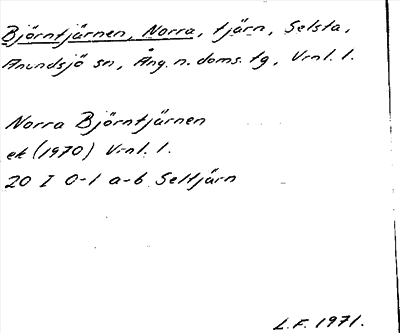 Björntjärnen, Norra, tjärn, Selsta,
Anundsjö sn, Ång. n. doms. tg, Vrnl. l.
Norra Björntjärnen
ek (1970) Vrnl. l.
20 I 0-1 a-b Seltjärn
L.F. 1971.